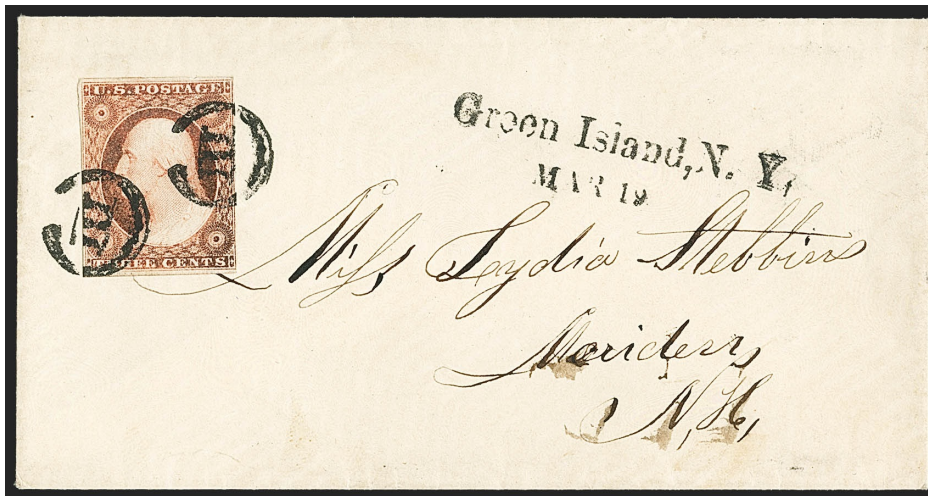 U.S. POSTAGE
THREE CENTS
Green Island, N. Y.
MAR 19
Miss Lydia Stebbins
Meriden,
N, H,